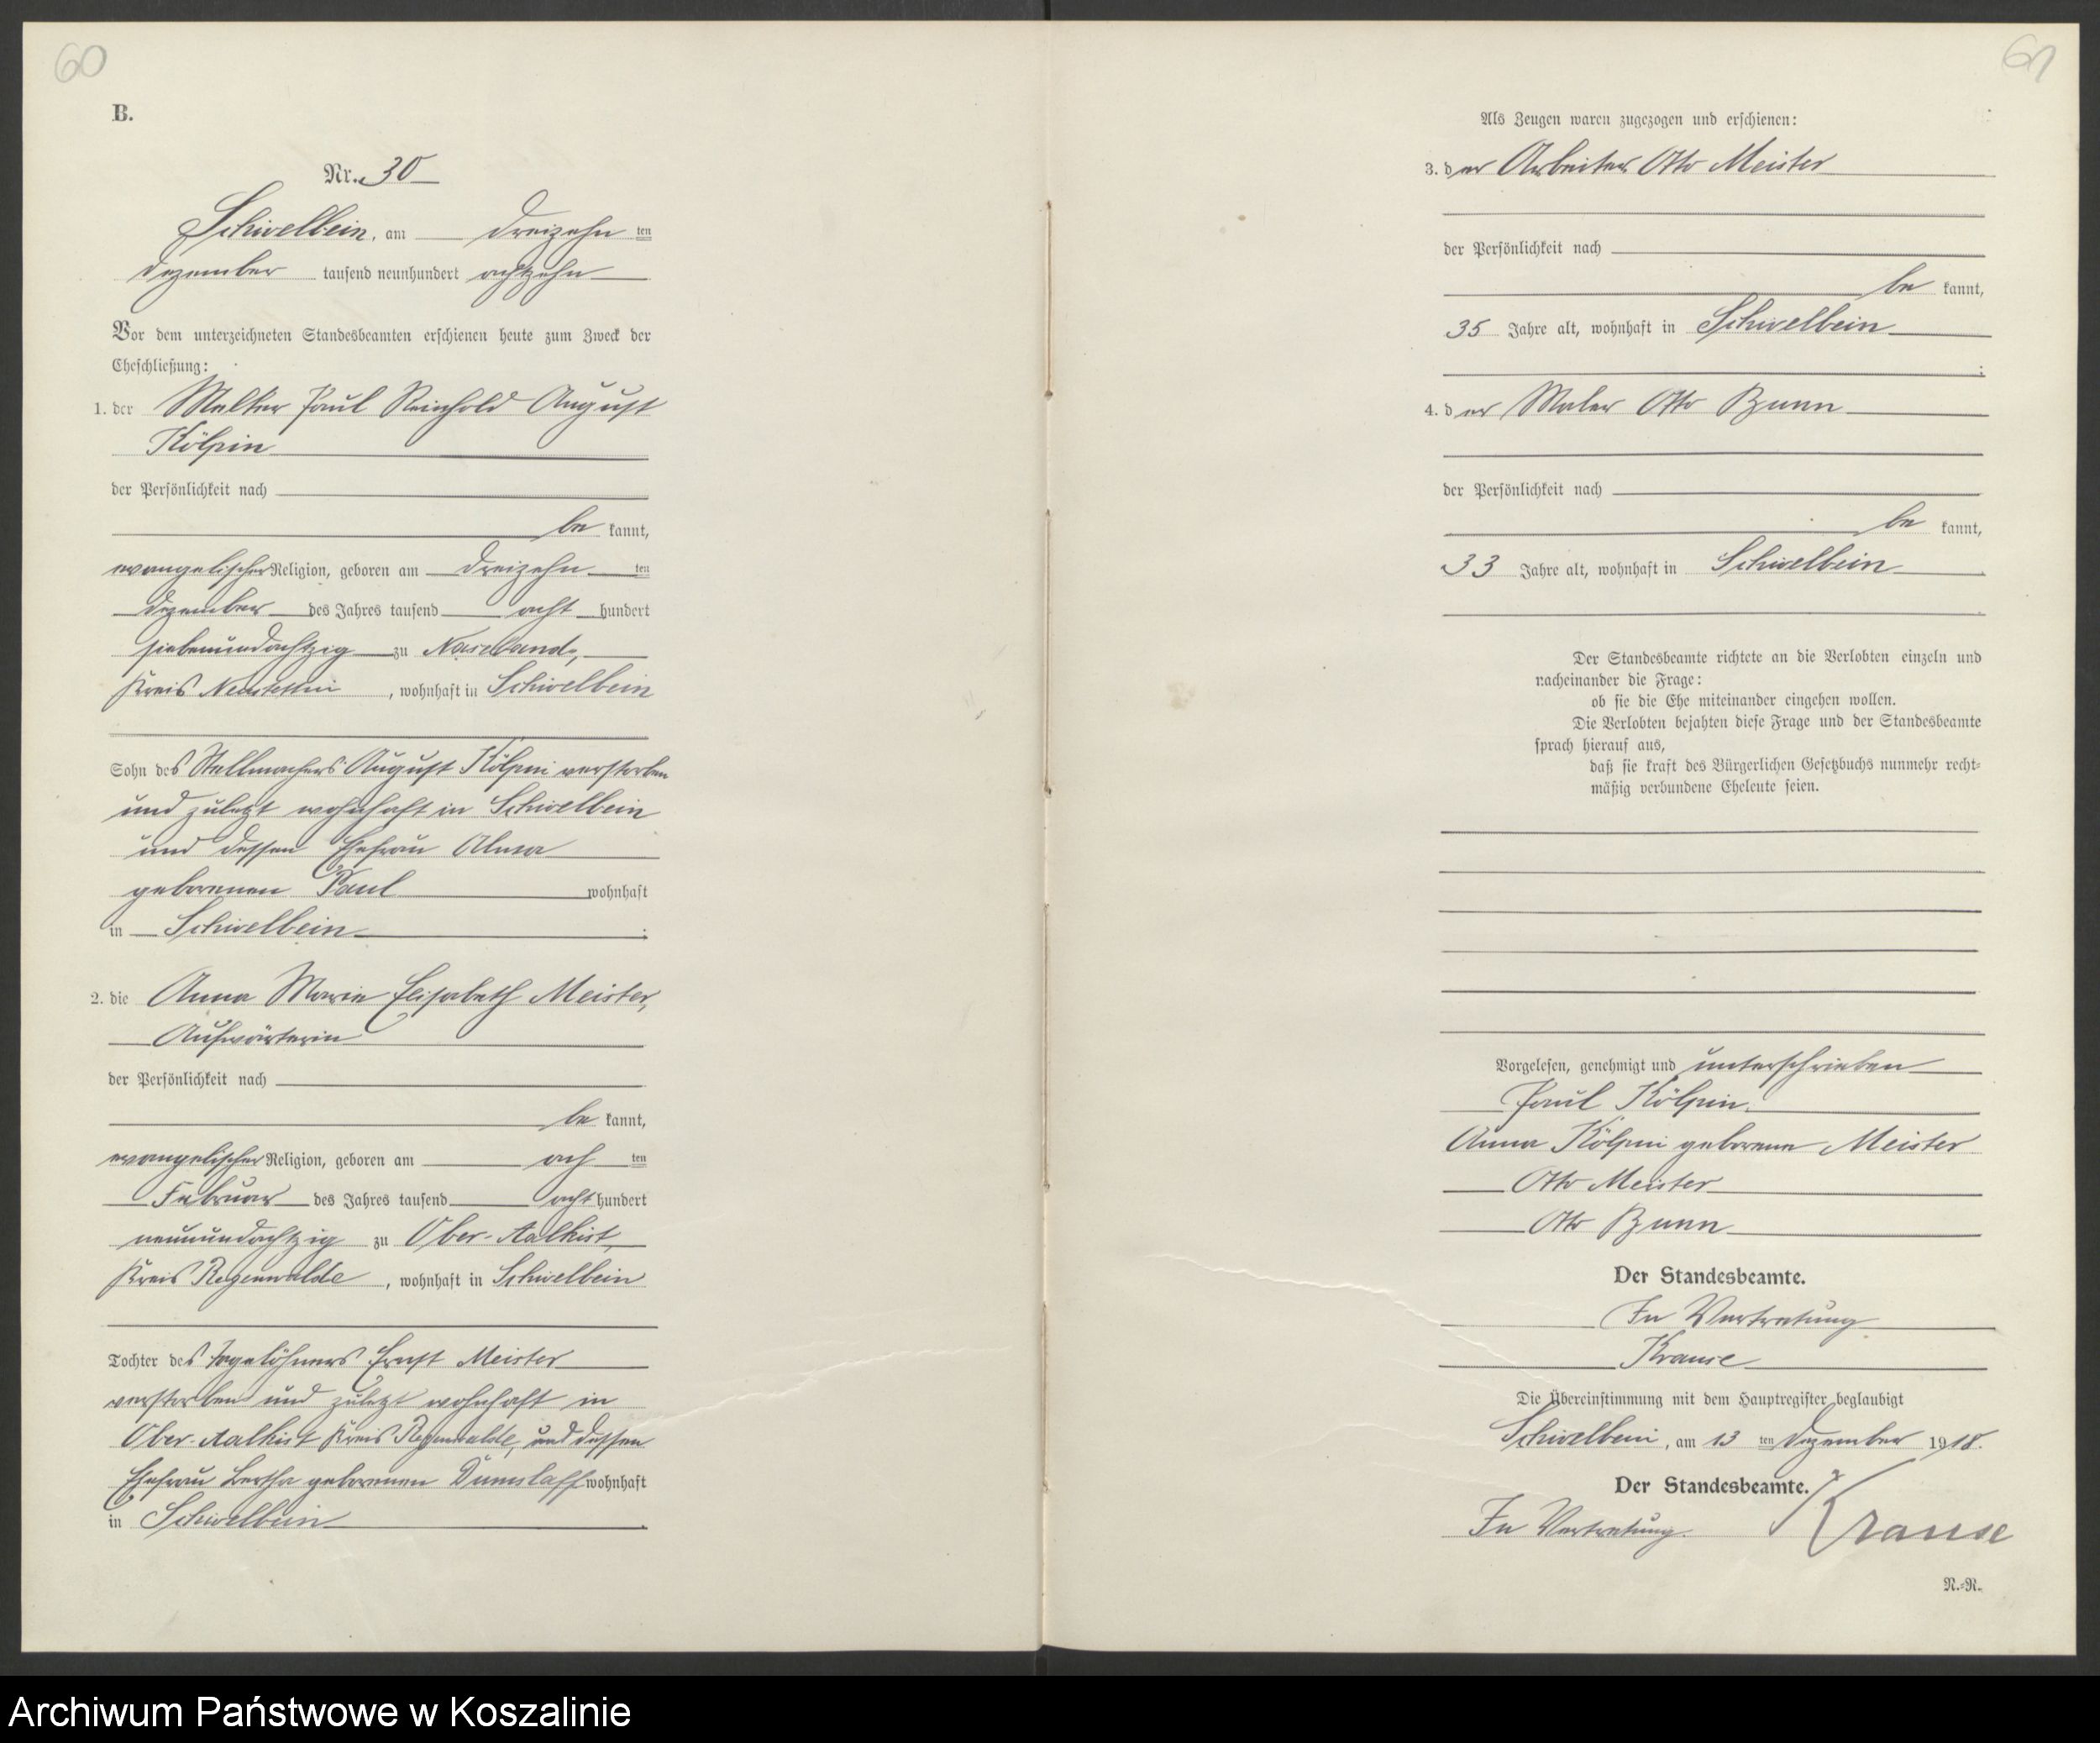 60
B.
Nr. 30
Schivelbein, am dreizehn ten
Dezember tausend neunhundert achtzehn
Vor dem unterzeichneten Standesbeamten erschienen heute zum Zweck der
Eheschließung:
1. der Melker Paul Reinhold August
Kölpin
der Persönlichkeit nach
be kannt,
evangelischer Religion, geboren am dreizehn ten
Dezember des Jahres tausend acht hundert
siebenundachtzig zu Naseband,
Kreis Neustettin, wohnhaft in Schivelbein
Sohn des Stellmachers August Kölpin verstorben
und zuletzt wohnhaft in Schivelbein
und dessen Ehefrau
geborenen Paul wohnhaft
in Schivelbein.
2. die Anna Marie Elisabeth Meister,
Aufwärterin
der Persönlichkeit nach
be kannt,
evangelischer Religion, geboren am ach ten
Februar des Jahres tausend acht hundert
neunundachtzig zu Ober-Aalkist,
Kreis Regenwalde, wohnhaft in Schivelbein
Tochter des Tagelöhners Ernst Meister
verstorben und zuletzt wohnhaft in
Ober-Aalkist Kreis Regenwalde, und dessen
Ehefrau Bertha geborenen Dumslaff wohnhaft
in Schivelbein.
61
Als Zeugen waren zugezogen und erschienen:
3. der Arbeiter Otto Meister
der Persönlichkeit nach
be kannt,
35 Jahre alt, wohnhaft in Schivelbein
;
4. der Maler Otto
der Persönlichkeit nach
be kannt,
33 Jahre alt, wohnhaft in Schivelbein.
Der Standesbeamte richtete an die Verlobten einzeln und
nacheinander die Frage:
ob sie die Ehe miteinander eingehen wollen.
Die Verlobten bejahten diese Frage und der Standesbeamte
sprach hierauf aus,
daß sie kraft des Bürgerlichen Gesetzbuchs nunmehr recht-
mäßig verbundene Eheleute seien.
Vorgelesen, genehmigt und unterschrieben
Paul Kölpin.
Anna Kölpin geborene Meister
Otto Meister
Otto
Der Standesbeamte.
In Vertretung
Krause
Die Übereinstimmung mit dem Hauptregister beglaubigt
Schivelbein, am 13 ten Dezember 1918.
Der Standesbeamte.
In Vertretung. Krause
N.-R.
Archiwum Państwowe w Koszalinie